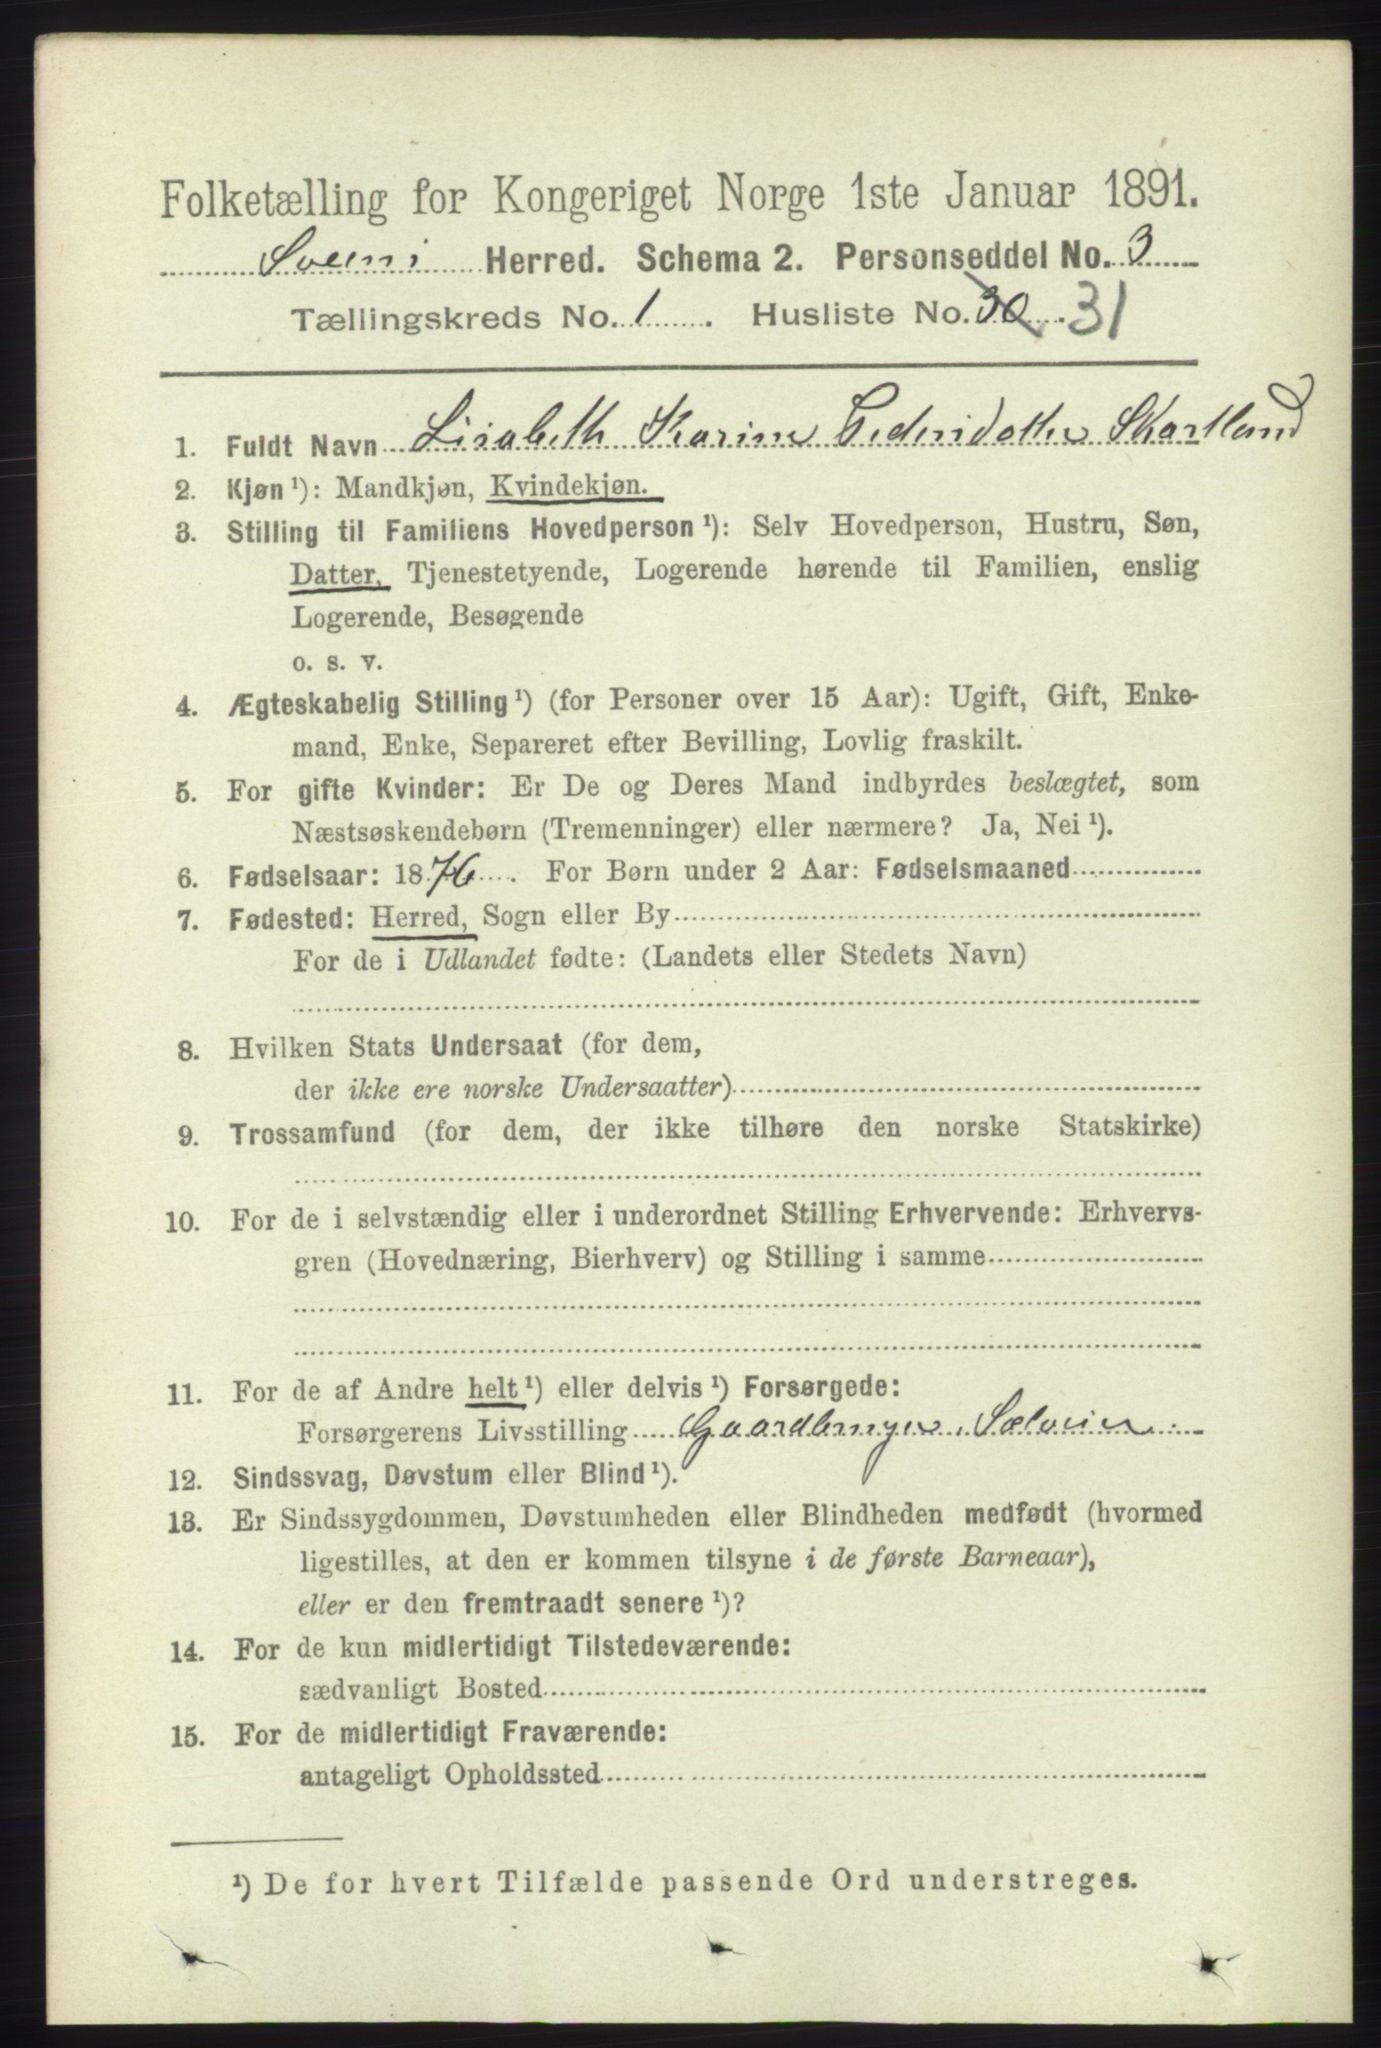 Folketælling for Kongeriget Norge 1ste Januar 1891.
Sveen i Herred. Schema 2. Personseddel No. 3
Tællingskreds No. 1. Husliste No. 30. 31
1. Fuldt Navn Lisabeth Karine Skartland
2. Kjøn ¹): Mandkjøn, Kvindekjøn.
3. Stilling til Familiens Hovedperson ¹): Selv Hovedperson, Hustru, Søn,
Datter, Tjenestetyende, Logerende hørende til Familien, enslig
Logerende, Besøgende
o. s. v.
4. Ægteskabelig Stilling ¹) (for Personer over 15 Aar): Ugift, Gift, Enke-
mand, Enke, Separeret efter Bevilling, Lovlig fraskilt.
5. For gifte Kvinder: Er De og Deres Mand indbyrdes beslægtet, som
Næstsøskendebørn (Tremenninger) eller nærmere? Ja, Nei ¹).
6. Fødselsaar: 1876. For Børn under 2 Aar: Fødselsmaaned
7. Fødested: Herred, Sogn eller By
For de i Udlandet fødte: (Landets eller Stedets Navn)
8. Hvilken Stats Undersaat (for dem,
der ikke ere norske Undersaatter)
9. Trossamfund (for dem, der ikke tilhøre den norske Statskirke)
10. For de i selvstændig eller i underordnet Stilling Erhvervende: Erhvervs-
gren (Hovednæring, Bierhverv) og Stilling i samme
11. For de af Andre helt ¹) eller delvis ¹) Forsørgede:
Forsørgerens Livsstilling Gaardbruger, Selveier
12. Sindssvag, Døvstum eller Blind ¹).
13. Er Sindssygdommen, Døvstumheden eller Blindheden medfødt (hvormed
ligestilles, at den er kommen tilsyne i de første Barneaar),
eller er den fremtraadt senere ¹)?
14. For de kun midlertidigt Tilstedeværende:
sædvanligt Bosted
15. For de midlertidigt Fraværende:
antageligt Opholdssted
¹) De for hvert Tilfælde passende Ord understreges.